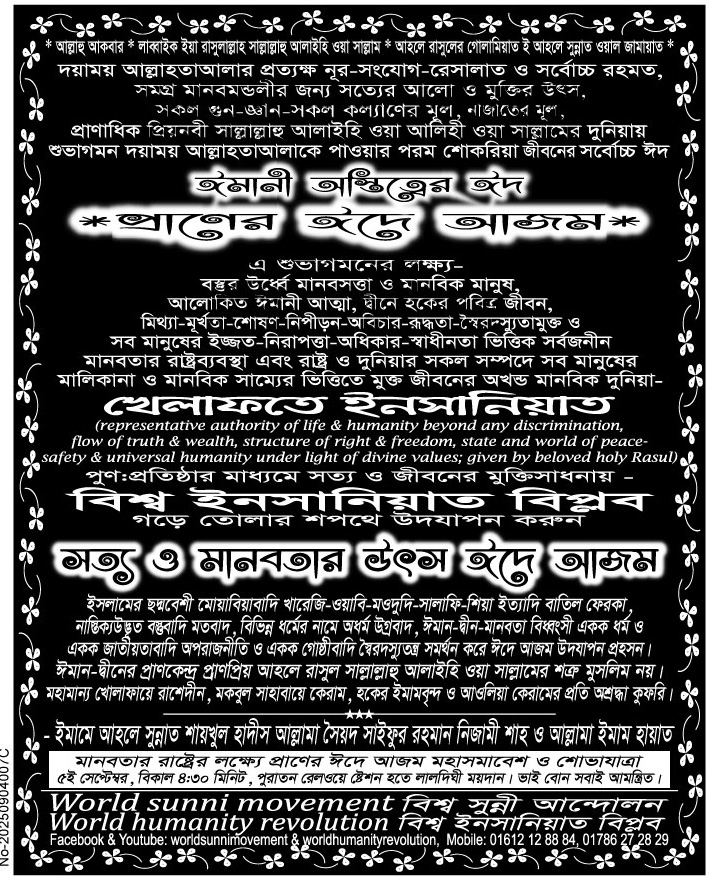 * আল্লাহু আকবার * লাব্বাইক ইয়া রাসুলাল্লাহ সাল্লাল্লাহু আলাইহি ওয়া সাল্লাম * আহলে রাসুলের গোলামিয়াত ই আহলে সুন্নাত ওয়াল জামায়াত *
দয়াময় আল্লাহতাআলার প্রত্যক্ষ নূর-সংযোগ-রেসালাত ও সর্বোচ্চ রহমত,
সমগ্র মানবমন্ডলীর জন্য সত্যের আলো ও মুক্তির উৎস,
সকল গুন-জ্ঞান-সকল কল্যাণের মূল, নাজাতের মূল,
প্রাণাধিক প্রিয়নবী সাল্লাল্লাহু আলাইহি ওয়া আলিহী ওয়া সাল্লামের দুনিয়ায়
শুভাগমন দয়াময় আল্লাহতাআলাকে পাওয়ার পরম শোকরিয়া জীবনের সর্বোচ্চ ঈদ
ঈমানী অস্তিত্বের ঈদ
*প্রাণের ঈদে আজম*
এ শুভাগমনের লক্ষ্য-
বস্তুর উর্ধ্বে মানবসত্তা ও মানবিক মানুষ,
আলোকিত ঈমানী আত্মা, দ্বীনে হকের পবিত্র জীবন,
মিথ্যা-মূর্খতা-শোষণ-নিপীড়ন-অবিচার-রূদ্ধতা-স্বৈরদস্যুতামুক্ত ও
সব মানুষের ইজ্জত-নিরাপত্তা-অধিকার-স্বাধীনতা ভিত্তিক সর্বজনীন
মানবতার রাষ্ট্রব্যবস্থা এবং রাষ্ট্র ও দুনিয়ার সকল সম্পদে সব মানুষের
মালিকানা ও মানবিক সাম্যের ভিত্তিতে মুক্ত জীবনের অখন্ড মানবিক দুনিয়া-
খেলাফতে ইনসানিয়াত
(representative authority of life & humanity beyond any discrimination,
flow of truth & wealth, structure of right & freedom, state and world of peace-
safety & universal humanity under light of divine values; given by beloved holy Rasul)
পুণ:প্রতিষ্ঠার মাধ্যমে সত্য ও জীবনের মুক্তিসাধনায় -
বিশ্ব ইনসানিয়াত বিপ্লব
গড়ে তোলার শপথে উদযাপন করুন
সত্য ও মানবতার উৎস ঈদে আজম
ইসলামের ছদ্মবেশী মোয়াবিয়াবাদি খারেজি-ওয়াবি-মওদুদি-সালাফি-শিয়া ইত্যাদি বাতিল ফেরকা,
নাস্তিক্যউদ্ভূত বস্তুবাদি মতবাদ, বিভিন্ন ধর্মের নামে অধর্ম উগ্রবাদ, ঈমান-দ্বীন-মানবতা বিধ্বংসী একক ধর্ম ও
একক জাতীয়তাবাদি অপরাজনীতি ও একক গোষ্ঠীবাদি স্বৈরদস্যুতন্ত্র সমর্থন করে ঈদে আজম উদযাপন প্রহসন।
ঈমান-দ্বীনের প্রাণকেন্দ্র প্রাণপ্রিয় আহলে রাসুল সাল্লাল্লাহু আলাইহি ওয়া সাল্লামের শত্রু মুসলিম নয়।
মহামান্য খোলাফায়ে রাশেদীন, মকবুল সাহাবায়ে কেরাম, হকের ইমামবৃন্দ ও আওলিয়া কেরামের প্রতি অশ্রদ্ধা কুফরি।
***
- ইমামে আহলে সুন্নাত শায়খুল হাদীস আল্লামা সৈয়দ সাইফুর রহমান নিজামী শাহ ও আল্লামা ইমাম হায়াত
মানবতার রাষ্ট্রের লক্ষ্যে প্রাণের ঈদে আজম মহাসমাবেশ ও শোভাযাত্রা
৫ই সেপ্টেম্বর, বিকাল ৪:৩০ মিনিট, পুরাতন রেলওয়ে ষ্টেশন হতে লালদিঘী ময়দান। ভাই বোন সবাই আমন্ত্রিত।
World sunni movement বিশ্ব সুন্নী আন্দোলন
World humanity revolution বিশ্ব ইনসানিয়াত বিপ্লব
Facebook & Youtube: worldsunnimovement & worldhumanityrevolution, Mobile: 01612 12 88 84, 01786 27 28 29
No-20250904007C